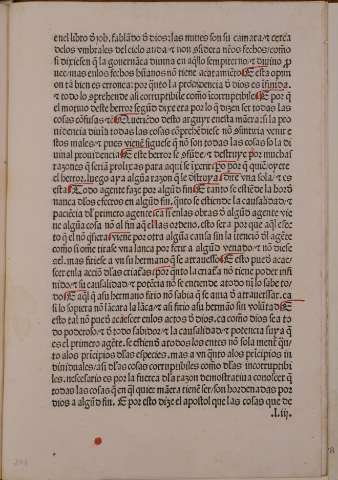 enel libro ð job. fablãdo ð dios: las nuues son su camara ⁊ cerca
delos vmbrales del cielo anda: ⁊ non ꝯsidera nr̃os fechos: como
si dixiesen q̃ la gouernãca diuina en aq̃llo sempiterno ⁊ diuino
mas enlos fechos hũanos nõ tiene acatamiẽto E esta opini
on tã bien es erronea: por quãto la prouidencia ð dios es
⁊ todo lo cõprehende asi corruptibile como incorruptibile E por q̃
el moyno deste herror segũd dize era por lo q̃ dizen ser todas las
cosas cõfusas ⁊ Cõtrario desto arguyr enesta mãera: si la pro
uidencia diuina todas las cosas cõprehẽdiese nõ cõsintiria venir e
stos males: ⁊ pues vienẽ siguese q̃ nõ son todas las cosas so la di
uinal prouidencia E este herror se cõfũde ⁊ destruye por muchas
razones q̃ seria prolixas para aqui se por q̃ quiẽ
el herror. luego aya algũa razon q̃ le destruya dire vna sola. ⁊ es
esta Todo agente faze por algũd fin E tanto se estiẽde la bordõ
nança dlos efectos en algũd fin. quãto se estiẽde la causalidad ⁊
paciẽcia dl primero agente ca si enlas obras ð algũd agente vie
ne algũa cosa nõ al fin aq̃l es las ordeno. esto sera por que aq̃l efec
to q̃ el nõ q̃siera viene por otra algũa causa sin la itẽciõ dl agẽte
como si õme tirase vna lança por ferir a algũd venado ⁊ nõ diese
enel. mas firiese a vn su hermano q̃ se atrauesso E esto puede acae
ser enla acciõ dlas criaturas por quãto la criatura nõ tiene poder infi
nido ⁊ su causalidad ⁊ potẽcia nõ se entiende atodo ni lo sabe to
do E aq̃l q̃ a su hermano firio nõ sabia q̃ se auia ð atrauessar. ca
si lo sopiera nõ lãcara la lãca ⁊ asi firio a su hermão sin volũtad E
esto tal nõ puede acaescer enlos actos ð dios. ca como dios sea to
do poderoso ⁊ ð todo sabidor ⁊ la causalidad ⁊ potencia suya q̃
es el primero agẽte. se estiẽde atodos los entes nõ sola mente quã
to alos prĩcipios dlas especies. mas a vn quãto alos prĩcipios in
diuiduales: asi dlas cosas corruptibiles como dlas incorruptibi
les. necesario es por la fuerca dla razon demostratiua conoscer q̃
todas las cosas q̃ en q̃l quier mãera tienẽ ser: son hordenadas por
dios a algũd fin. E por esto dize el apostol que las cosas que de
.l. iij.